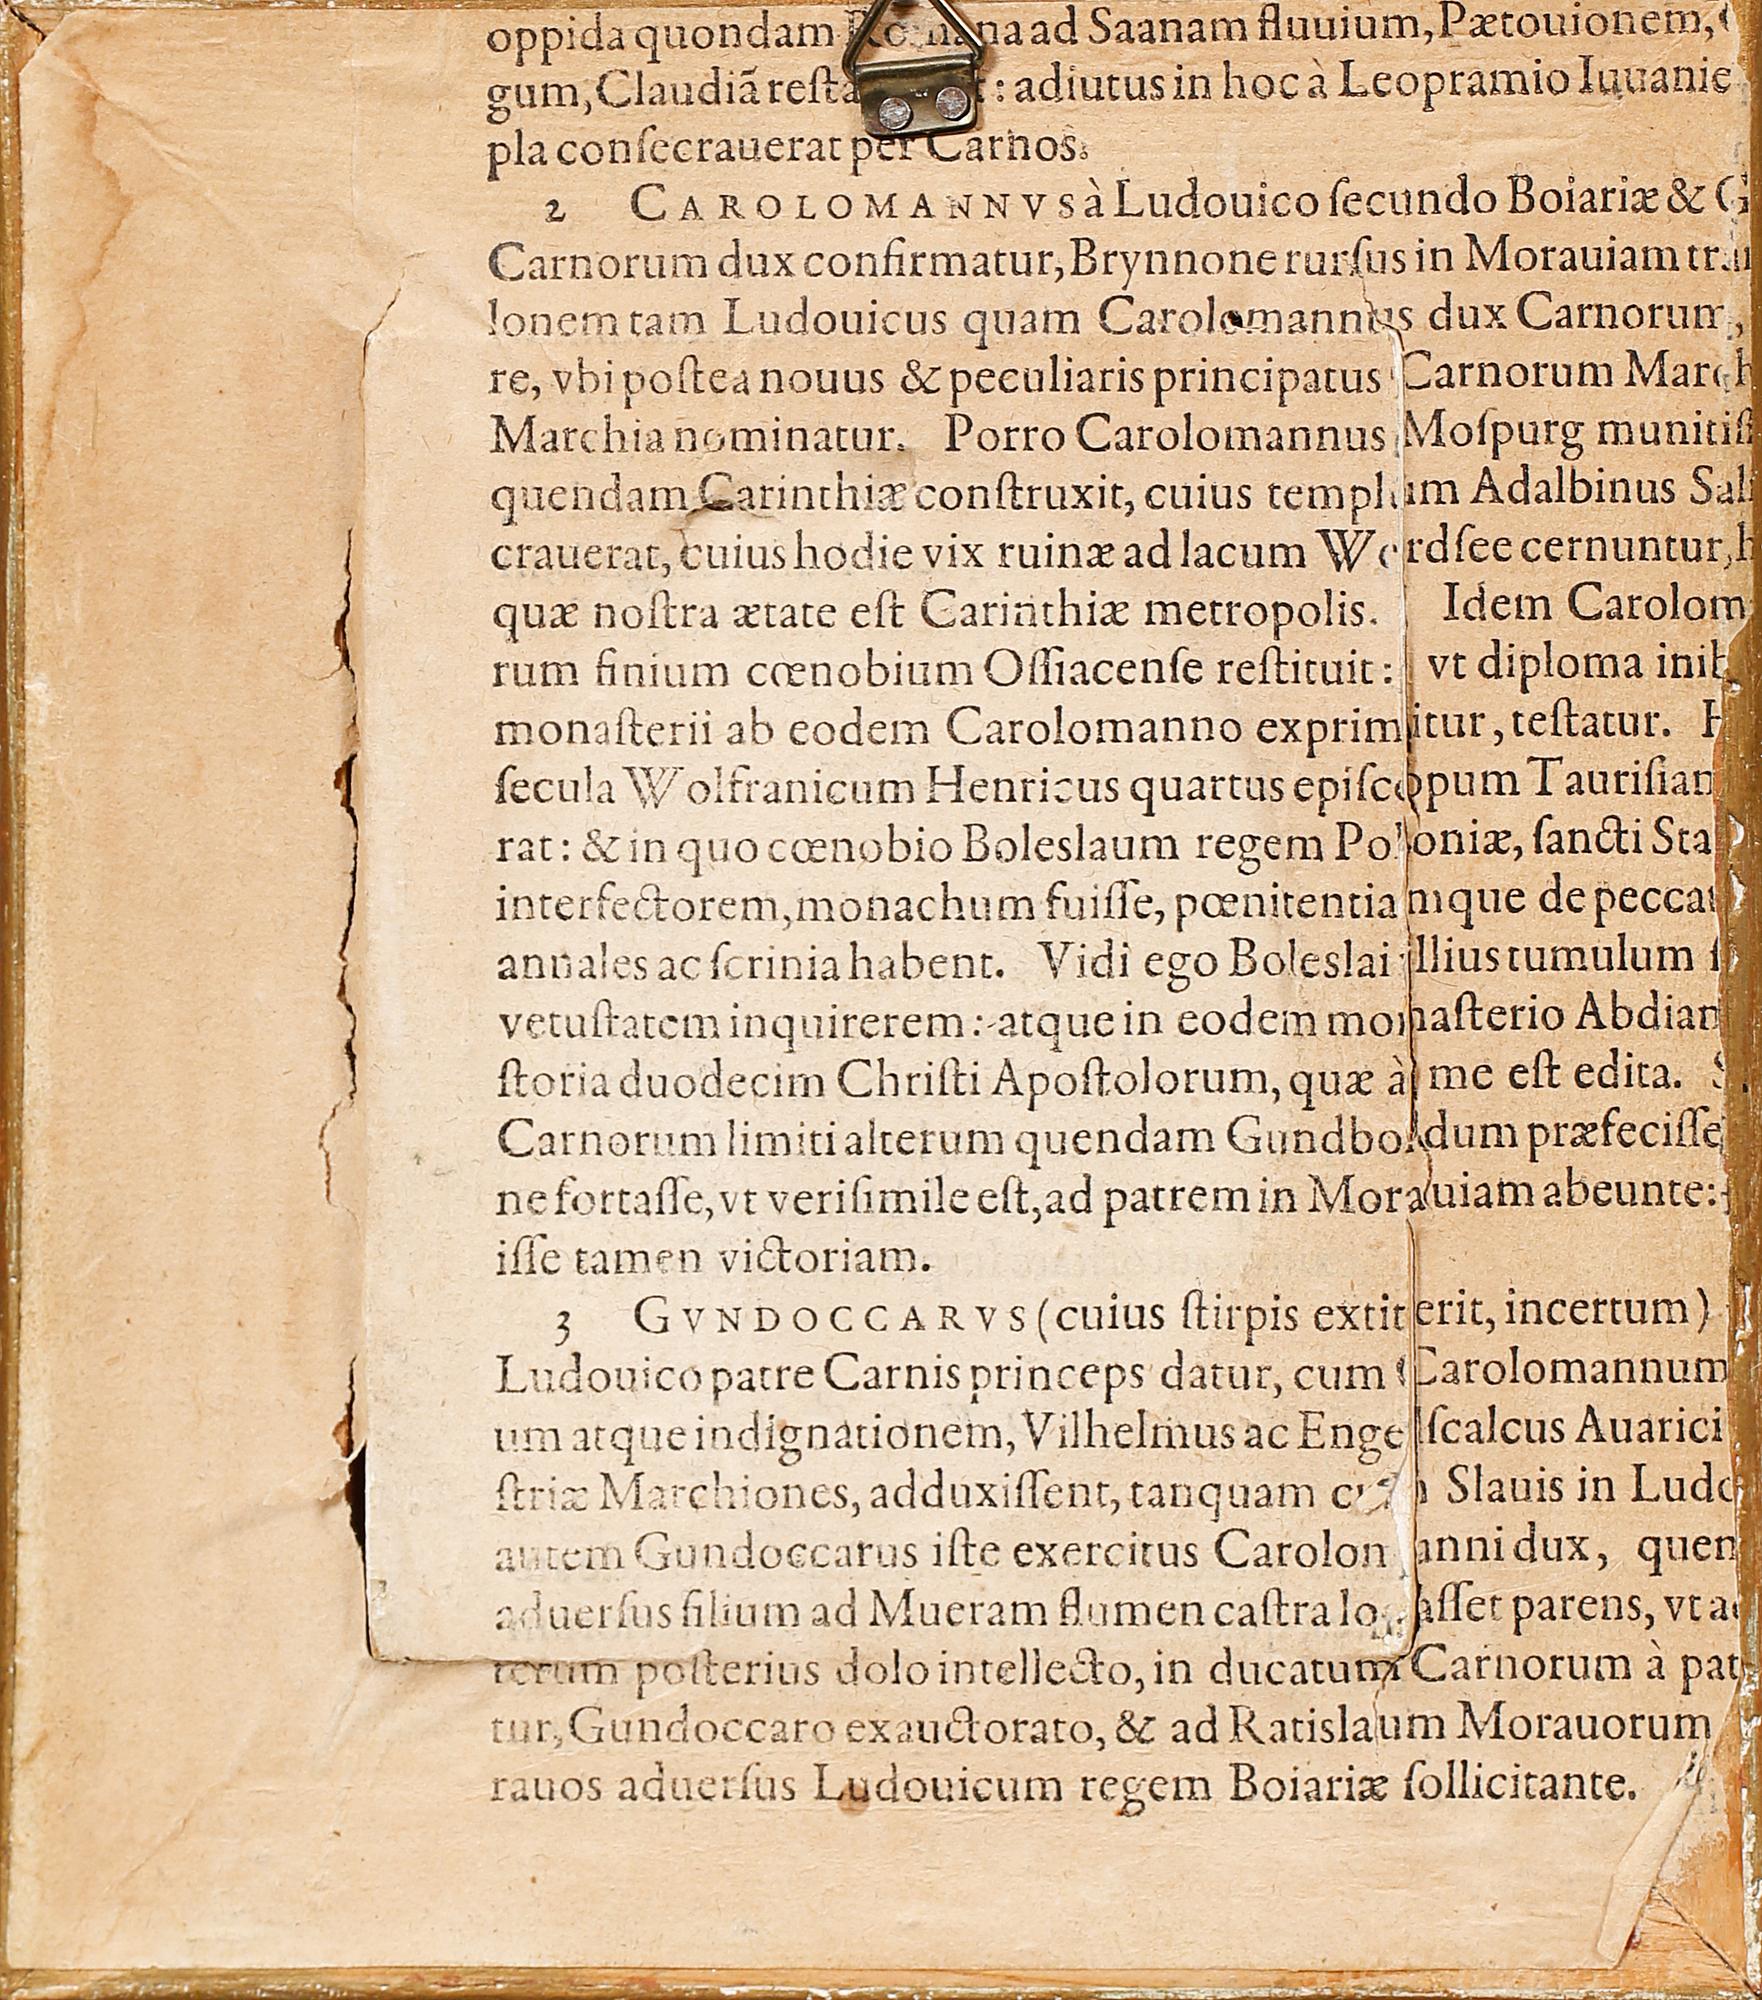 oppida quondam Romana ad Saanam fluuium, Pætouionem,
gum, Claudiã : adiutus in hoc à Leopramio Iuuanie
pla conſecrauerat per Carnos.
2 CAROLOMANNVS à Ludouico ſecundo Boiariæ & G
Carnorum dux confirmatur, Brynnone rurſus in Morauiam tran
lonem tam Ludouicus quam Carolomannus dux Carnorum,
re, vbi poſtea nouus & peculiaris principatus Carnorum March
Marchia nominatur. Porro Carolomannus Moſpurg munitiſ
quendam Carinthiæ conſtruxit, cuius templum Adalbinus Sal
crauerat, cuius hodie vix ruinæ ad lacum Werdſee cernuntur, h
quæ noſtra ætate eſt Carinthiæ metropolis. Idem Carolom
rum finium cœnobium Oſſiacenſe reſtituit: vt diploma inib
monaſterii ab eodem Carolomanno exprimitur, teſtatur.
ſecula Wolfranicum Henricus quartus epiſcopum Tauriſian
rat: & in quo cœnobio Boleslaum regem Poloniæ, ſancti Sta
interfectorem, monachum fuiſſe, pœnitentiamque de peccat
annales ac ſcrinia habent. Vidi ego Boleslai illius tumulum ſ
vetuſtatem inquirerem: atque in eodem monaſterio Abdian
ſtoria duodecim Chriſti Apoſtolorum, quæ à me eſt edita.
Carnorum limiti alterum quendam Gundboldum præfeciſſe
ne fortaſſe, vt veriſimile eſt, ad patrem in Morauiam abeunte:
iſſe tamen victoriam.
3 GVNDOCCARVS (cuius ſtirpis extiterit, incertum)
Ludouico patre Carnis princeps datur, cum Carolomannum
um atque indignationem, Vilhelmus ac Engelſcalcus Auarici
ſtriæ Marchiones, adduxiſſent, tanquam cum Slauis in Ludo
autem Gundoccarus iſte exercitus Carolomanni dux, quen
aduerſus filium ad Mueram flumen caſtra locaſſet parens, vt a
terum poſterius dolo intellecto, in ducatum Carnorum à pat
tur, Gundoccaro exauctorato, & ad Ratislaum Morauorum
rauos aduerſus Ludouicum regem Boiariæ ſollicitante.